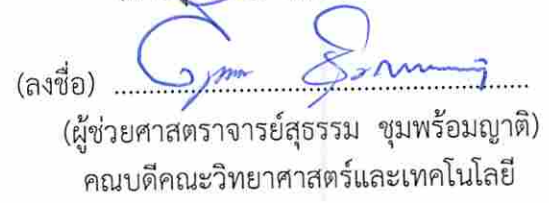 (ลงชื่อ) ........................................................
(ผู้ช่วยศาสตราจารย์สุธรรม ชุมพร้อมญาติ)
คณบดีคณะวิทยาศาสตร์และเทคโนโลยี